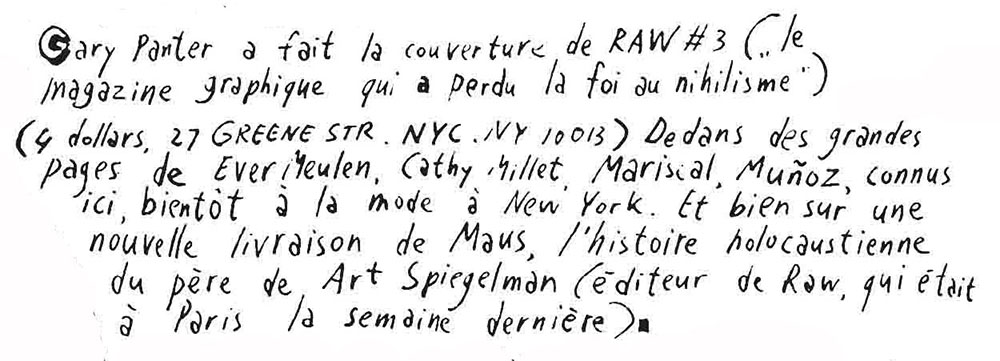 Gary Panter a fait la couverture de RAW #3 ("le
magazine graphique qui a perdu la foi au nihilisme")
(4 dollars, 27 GREENE STR. NYC. NY 10013) Dedans des grandes
pages de Ever Meulen, Cathy Millet, Mariscal, Muñoz, connus
ici, bientôt à la mode à New York. Et bien sur une
nouvelle livraison de Maus, l'histoire holocaustienne
du père de Art Spiegelman (éditeur de Raw, qui était
à Paris la semaine dernière).